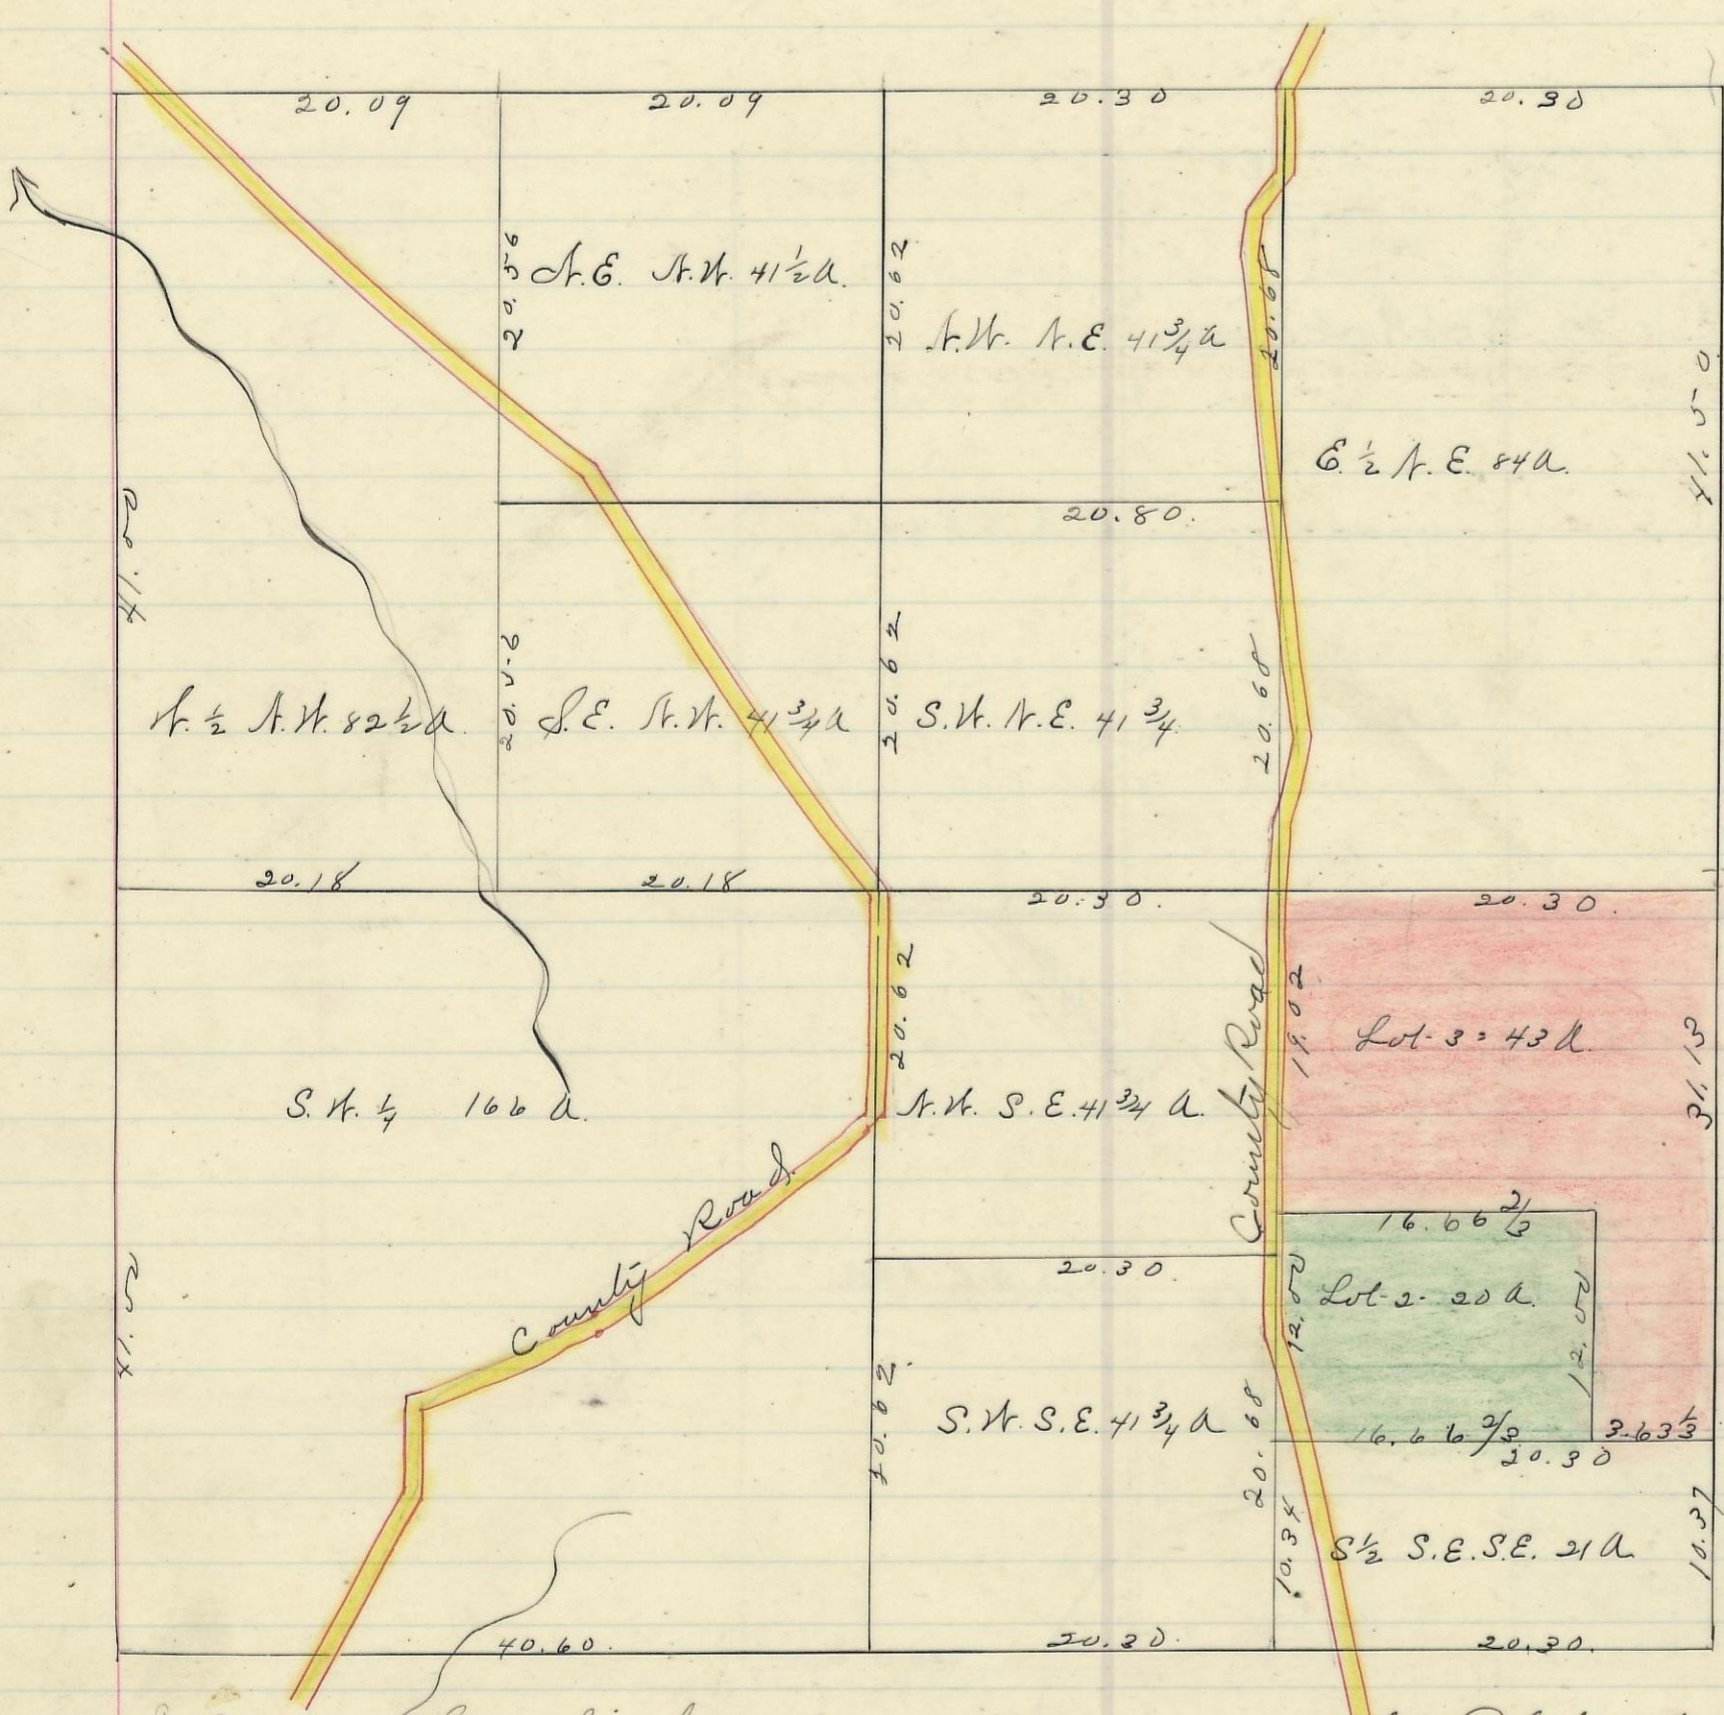 20.09 20.09 20.30 20.30
20.56
N.E. N.W. 41 ½ A.
20.62
N.W. N.E. 41 ¾ A
20.68
E. ½ N.E. 84 A.
41.50
41.00
20.80.
W. ½ N.W. 82 ½ A.
20.56
S.E. N.W. 41 ¾ A
20.62
S.W. N.E. 41 ¾
20.68
20.18 20.18 20.30. 20.30.
20.62
County Road
19.02
Lot-3 = 43 A.
31.13
S.W. ¼ 166 A.
N.W. S.E. 41 ¾ A.
County Road
16.66 ⅔
20.30
12.00
Lot-2- 20 A.
12.00
41.00
20.62
S.W. S.E. 41 ¾ A
20.68
16.66 ⅔
3.63 ⅓
20.30
10.34
S ½ S.E. S.E. 21 A.
10.37
40.60. 20.30. 20.30.